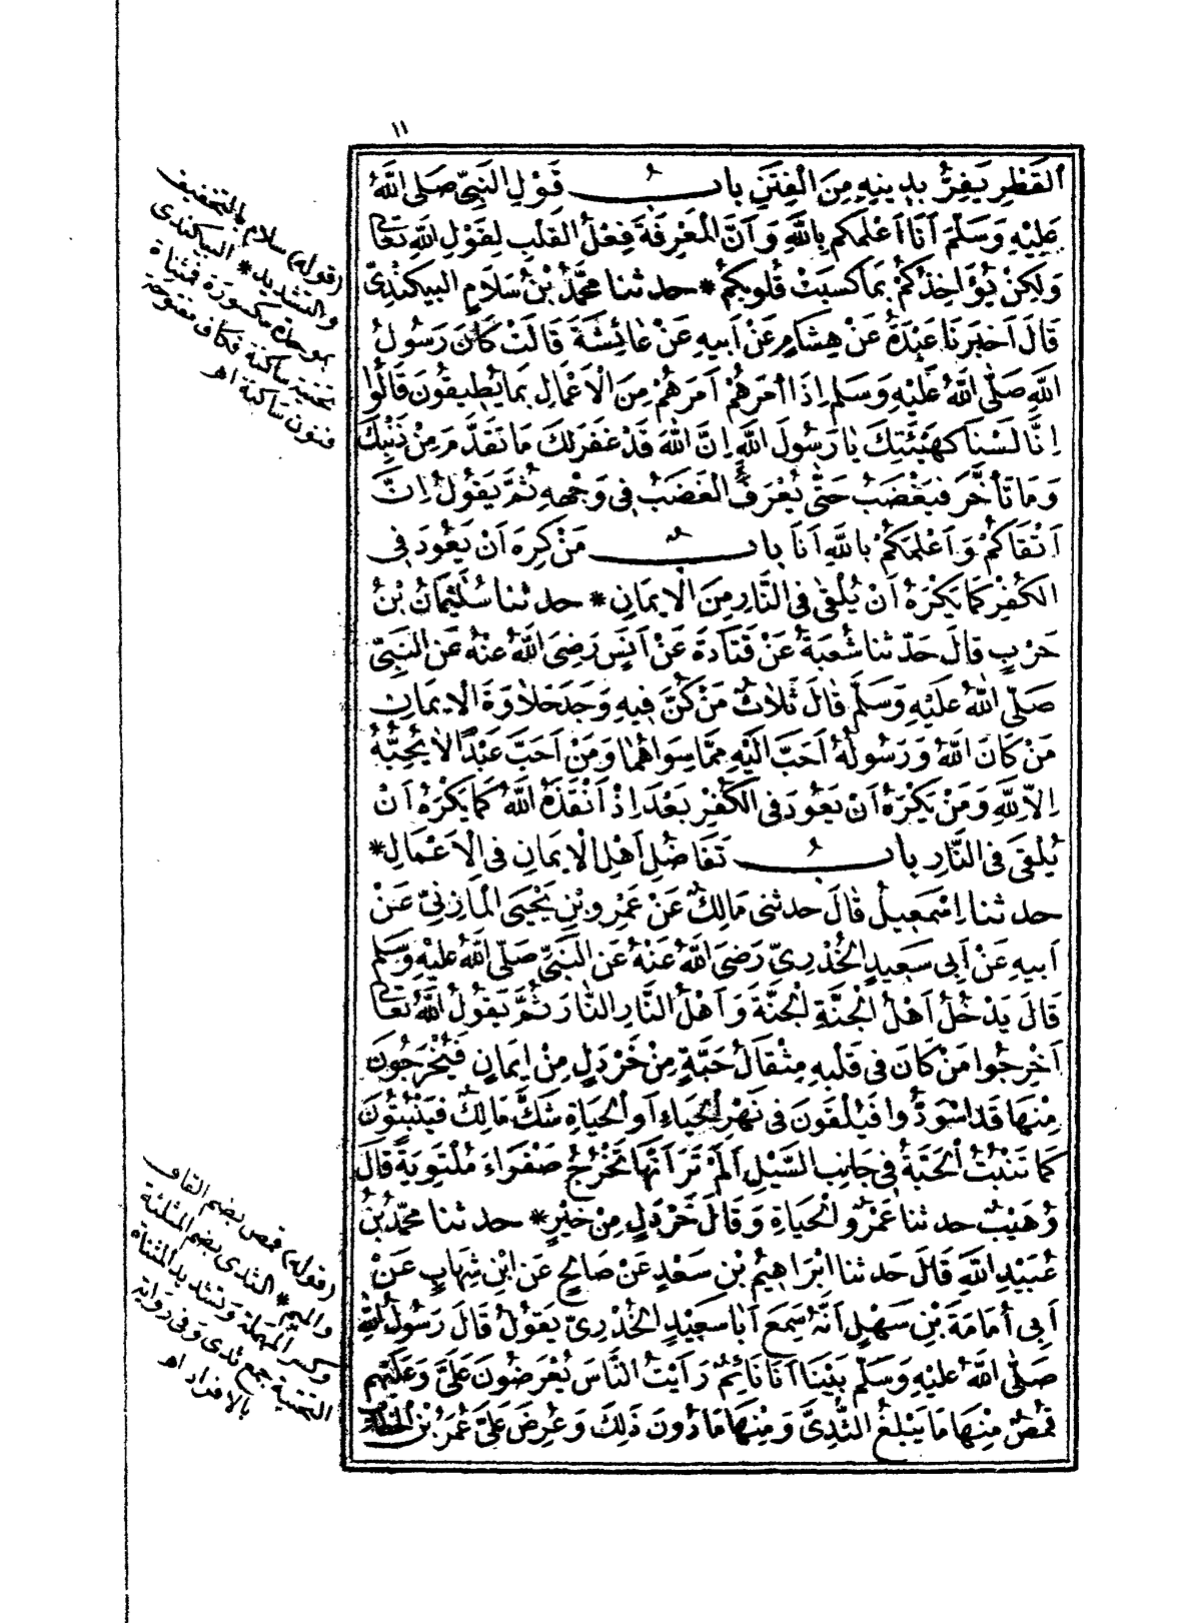 ١١
القَطْرِ يَفِرُّ بِدِينِهِ مِنَ الْفِتَنِ بابُ قَوْلِ النَّبِيِّ صَلَّى اللَّهُ
عَلَيْهِ وَسَلَّمَ أَنَا أَعْلَمُكُمْ بِاللَّهِ وَأَنَّ الْمَعْرِفَةَ فِعْلُ الْقَلْبِ لِقَوْلِ اللَّهِ تَعَالَى
وَلَكِنْ يُؤَاخِذُكُمْ بِمَا كَسَبَتْ قُلُوبُكُمْ * حدثنا مُحَمَّدُ بْنُ سَلَامٍ البِيكَنْدِيُّ
قَالَ أَخْبَرَنَا عَبْدَةُ عَنْ هِشَامٍ عَنْ أَبِيهِ عَنْ عَائِشَةَ قَالَتْ كَانَ رَسُولُ
اللَّهِ صَلَّى اللَّهُ عَلَيْهِ وَسَلَّمَ إِذَا أَمَرَهُمْ أَمَرَهُمْ مِنَ الْأَعْمَالِ بِمَا يُطِيقُونَ قَالُوا
إِنَّا لَسْنَا كَهَيْئَتِكَ يَا رَسُولَ اللَّهِ إِنَّ اللَّهَ قَدْ غَفَرَ لَكَ مَا تَقَدَّمَ مِنْ ذَنْبِكَ
وَمَا تَأَخَّرَ فَيَغْضَبُ حَتَّى يُعْرَفَ الْغَضَبُ فِي وَجْهِهِ ثُمَّ يَقُولُ إِنَّ
أَتْقَاكُمْ وَأَعْلَمَكُمْ بِاللَّهِ أَنَا بابُ مَنْ كَرِهَ أَنْ يَعُودَ فِي
الْكُفْرِ كَمَا يَكْرَهُ أَنْ يُلْقَى فِي النَّارِ مِنَ الْإِيمَانِ * حدثنا سُلَيْمَانُ بْنُ
حَرْبٍ قَالَ حَدَّثنا شُعْبَةُ عَنْ قَتَادَةَ عَنْ أَنَسٍ رَضِيَ اللَّهُ عَنْهُ عَنِ النَّبِيِّ
صَلَّى اللَّهُ عَلَيْهِ وَسَلَّمَ قَالَ ثَلَاثٌ مَنْ كُنَّ فِيهِ وَجَدَ حَلَاوَةَ الْإِيمَانِ
مَنْ كَانَ اللَّهُ وَرَسُولُهُ أَحَبَّ إِلَيْهِ مِمَّا سِوَاهُمَا وَمَنْ أَحَبَّ عَبْدًا لَا يُحِبُّهُ
إِلَّا لِلَّهِ وَمَنْ يَكْرَهُ أَنْ يَعُودَ فِي الْكُفْرِ بَعْدَ إِذْ أَنْقَذَهُ اللَّهُ كَمَا يَكْرَهُ أَنْ
يُلْقَى فِي النَّارِ بابُ تَفَاضُلِ أَهْلِ الْإِيمَانِ فِي الْأَعْمَالِ *
حدثنا إِسْمَعِيلُ قَالَ حدثنى مَالِكٌ عَنْ عَمْرِو بْنِ يَحْيَى الْمَازِنِيِّ عَنْ
أَبِيهِ عَنْ أَبِي سَعِيدٍ الْخُدْرِيِّ رَضِيَ اللَّهُ عَنْهُ عَنِ النَّبِيِّ صَلَّى اللَّهُ عَلَيْهِ وَسَلَّمَ
قَالَ يَدْخُلُ أَهْلُ الْجَنَّةِ الْجَنَّةَ وَأَهْلُ النَّارِ النَّارَ ثُمَّ يَقُولُ اللَّهُ تَعَالَى
أَخْرِجُوا مَنْ كَانَ فِي قَلْبِهِ مِثْقَالُ حَبَّةٍ مِنْ خَرْدَلٍ مِنْ إِيمَانٍ فَيُخْرَجُونَ
مِنْهَا قَدِ اسْوَدُّوا فَيُلْقَوْنَ فِي نَهْرِ الْحَيَاءِ أَوِ الْحَيَاةِ شَكَّ مَالِكٌ فَيَنْبُتُونَ
كَمَا تَنْبُتُ الْحَبَّةُ فِي جَانِبِ السَّيْلِ أَلَمْ تَرَ أَنَّهَا تَخْرُجُ صَفْرَاءَ مُلْتَوِيَةً قَالَ
وُهَيْبٌ حدثنا عَمْرٌو الْحَيَاةِ وَقَالَ خَرْدَلٍ مِنْ خَيْرٍ * حدثنا مُحَمَّدُ بْنُ
عُبَيْدِ اللَّهِ قَالَ حَدثنا إِبْرَاهِيمُ بْنُ سَعْدٍ عَنْ صَالِحٍ عَنِ ابْنِ شِهَابٍ عَنْ
أَبِي أُمَامَةَ بْنِ سَهْلٍ أَنَّهُ سَمِعَ أَبَا سَعِيدٍ الْخُدْرِيَّ يَقُولُ قَالَ رَسُولُ اللَّهِ
صَلَّى اللَّهُ عَلَيْهِ وَسَلَّمَ بَيْنَا أَنَا نَائِمٌ رَأَيْتُ النَّاسَ يُعْرَضُونَ عَلَيَّ وَعَلَيْهِمْ
قُمُصٌ مِنْهَا مَا يَبْلُغُ الثُّدِيَّ وَمِنْهَا مَا دُونَ ذَلِكَ وَعُرِضَ عَلَيَّ عُمَرُ بْنُ الْخَطَّابِ
(قوله) سلام بالتخفيف
والتشديد * البيكندى
بموحدة مكسورة فمثناة
تحتية ساكنة فكاف مفتوحة
فنون ساكنة اهـ
(قوله) قمص بضم القاف
والميم * الثدى بضم المثلثة
وكسر المهملة وتشديد المثناة
التحتية جمع ثدى وفى رواية
بالافراد اهـ